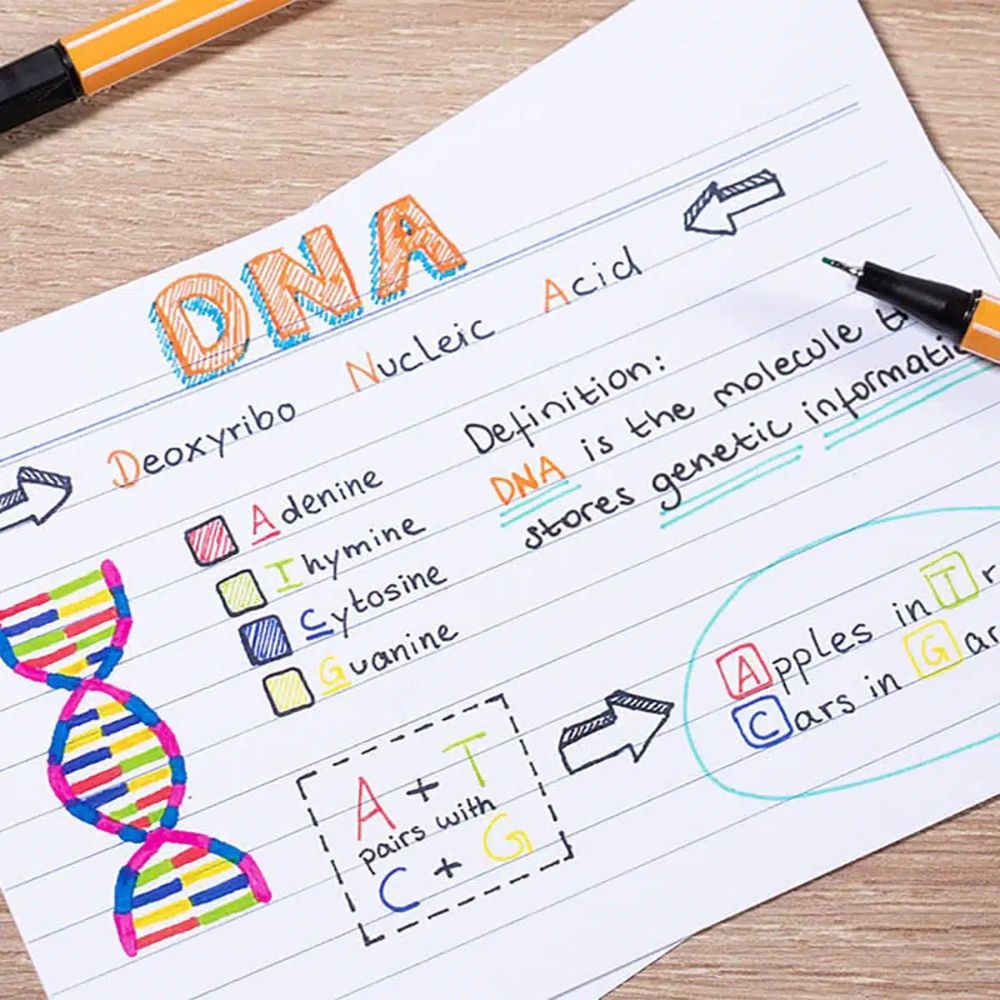 DNA
Deoxyribo Nucleic Acid
Definition:
DNA is the molecule
stores genetic
Adenine
Thymine
Cytosine
Guanine
A + T
pairs with
C + G
Apples in T
Cars in